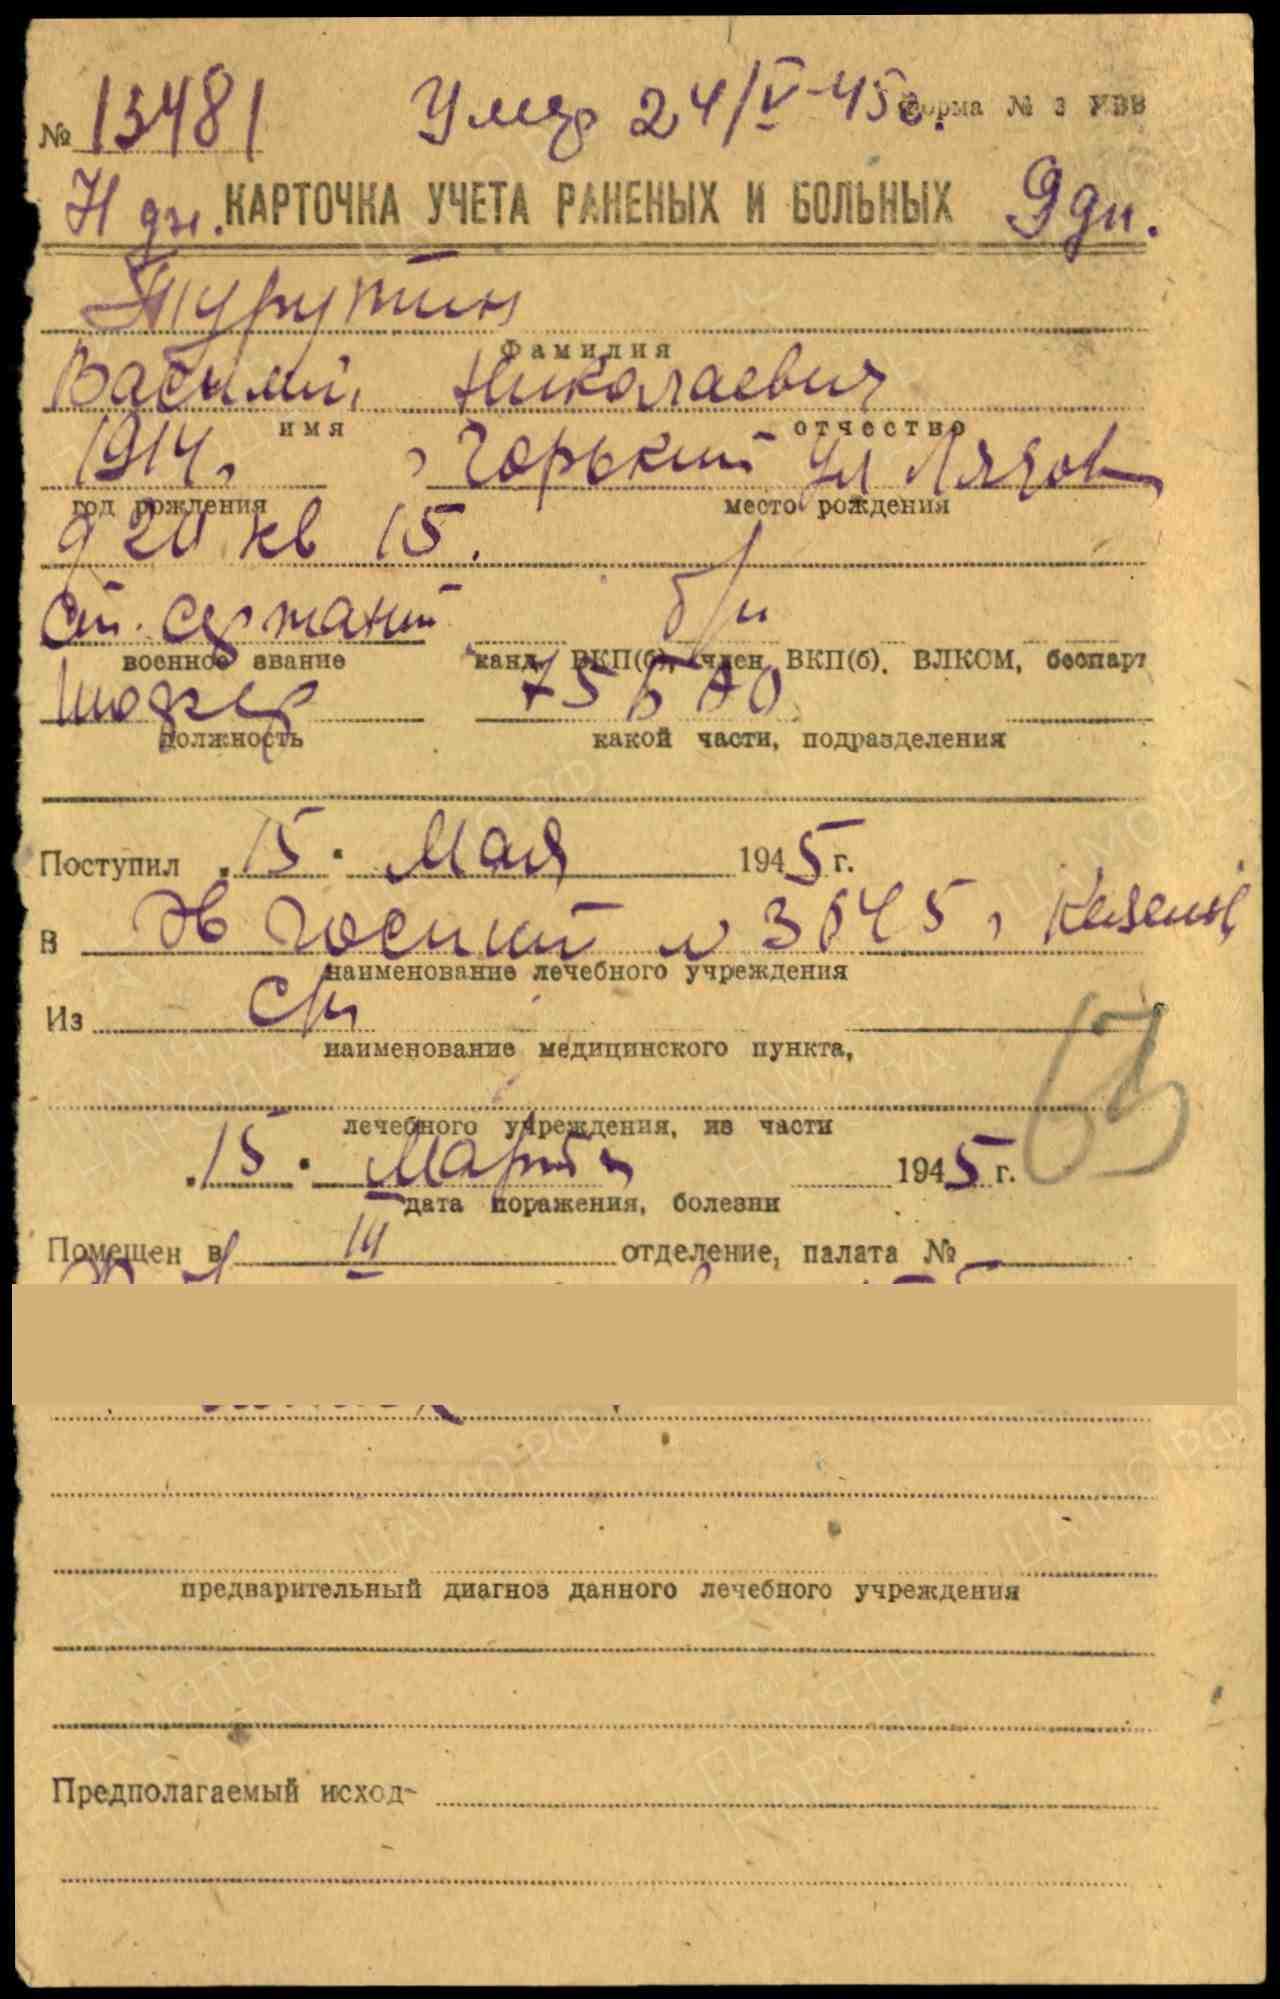 № 13481 Умер 24/V-45г. Форма № 3
дн. КАРТОЧКА УЧЕТА РАНЕНЫХ И БОЛЬНЫХ 9 дн.
Турутин
Фамилия
Василий Николаевич
имя отчество
1914, Горький ул
год рождения место рождения
д 20 кв 15.
ст. сержант б/п
военное звание канд. ВКП(б), член ВКП(б), ВЛКСМ, беспарт
Шофер
должность какой части, подразделения
Поступил "15" Мая 1945 г.
В Эв госпит №
наименование лечебного учреждения
Из
наименование медицинского пункта,
лечебного учреждения, из части
"15" Марта 1945 г.
дата поражения, болезни
Помещен в III отделение, палата №
предварительный диагноз данного лечебного учреждения
Предполагаемый исход-
ПАМЯТЬ НАРОДА
ЦАМО.РФ